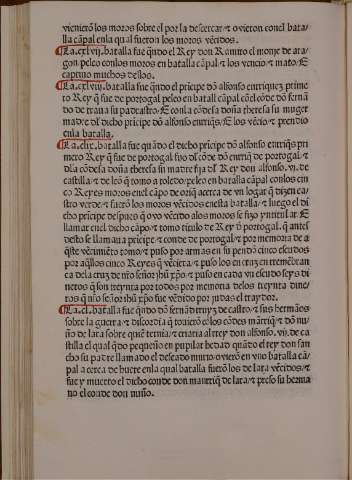 vieniero̅ los moros sobre el por la descercar ⁊ ovieron concl bata/
lla ca̅pal enla qual fuero̅ los moros ve̅cidos.
¶ La .cxlvij. batalla fue qn̅do el Rey don Ramiro el monje de ara/
gon peleo conlos moros en batalla ca̅pal ⁊ los vencio ⁊ mato ⁊
captivo muchos dellos.
¶ La .cxlviij. batalla fue qn̅do el pri̅cipe do̅ alfonso enrriquez prime
ro Rey q̅ fue de portogal peleo en batalla ca̅pal co̅el co̅de do̅ ferna̅
do de trava su padrastro ⁊ conla co̅desa doña theresa su muger
madre dl̅ dicho pri̅cipe do̅ alfonso enrriq̅s ⁊ los ve̅cio ⁊ prendio
enla batalla.
¶ La .cxlix. batalla fue qua̅do el dicho pri̅cipe do̅ alfonso enrriq̅s pri
mero Rey q̅ fue de portogal fijo dl̅ co̅de do̅ enrriq̅ de portogal ⁊
dl̅a co̅desa doña theresa su madre fija dl̅ Rey don alfonso .vj. de
castilla ⁊ de leo̅ q̅ tomo a toledo peleo en batalla ca̅pal conlos ci̅
co Reyes moros enel ca̅po de oriq̅ acerca de vn logar q̅ dizen ca/
stro verde ⁊ fuero̅ los moros ve̅cidos enesta batalla ⁊ luego el di
cho pri̅cipe despues q̅ ovo ve̅cido alos moros se fizo yntitular ⁊
llamar enel dicho ca̅po ⁊ tomo titulo de Rey d̅ portogal. q̅ antes
desto se llamava pri̅cipe ⁊ conde de portogal ⁊ por memoria de a
q̅ste ve̅cimie̅to tomo ⁊ puso por armas en su pendo̅ cinco escudos
por aq̅llos cinco Reyes q̅ ve̅ciera ⁊ puso los en cruz en reme̅bran
ca dela cruz de nr̅o señor jhu̅ xp̅o ⁊ puso en cada vn escudo seys di
neros q̅ son treynta por todos por memoria delos treynta dine/
ros q̅ nr̅o señor jhu̅ xp̅o fue ve̅dido por judas el traydor.
¶ La .cl. batalla fue qn̅do do̅ ferna̅d rruyz de castro ⁊ sus hermanos
sobre la guerra ⁊ discordia q̅ toviero̅ co̅los co̅des ma̅rriq̅ ⁊ do̅ nu/
ño de lara sobre quie̅ ternia ⁊ criaria al rrey don alfonso .vij. de ca
stilla el qual q̅do pequeño en pupilar hedad qua̅do el rrey don san
cho su padre llamado el deseado murio ovieron en vno batalla ca̅/
pal acerca de huete enla qual batalla fuero̅ los de lara ve̅cidos ⁊
fue y muerto el dicho conde don manrriq̅ de lara ⁊ preso su herma
no el conde don nuño.